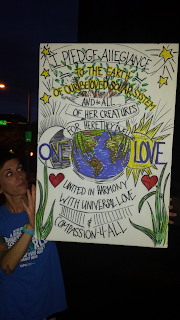 I PLEDGE ALLEGIANCE
TO THE EARTH
OF OUR BELOVED SOLAR SYSTEM
AND to ALL
OF HER CREATURES
FOR HERE
ONE LOVE
UNITED IN HARMONY
WITH UNIVERSAL LOVE
&
COMPASSION-4-ALL